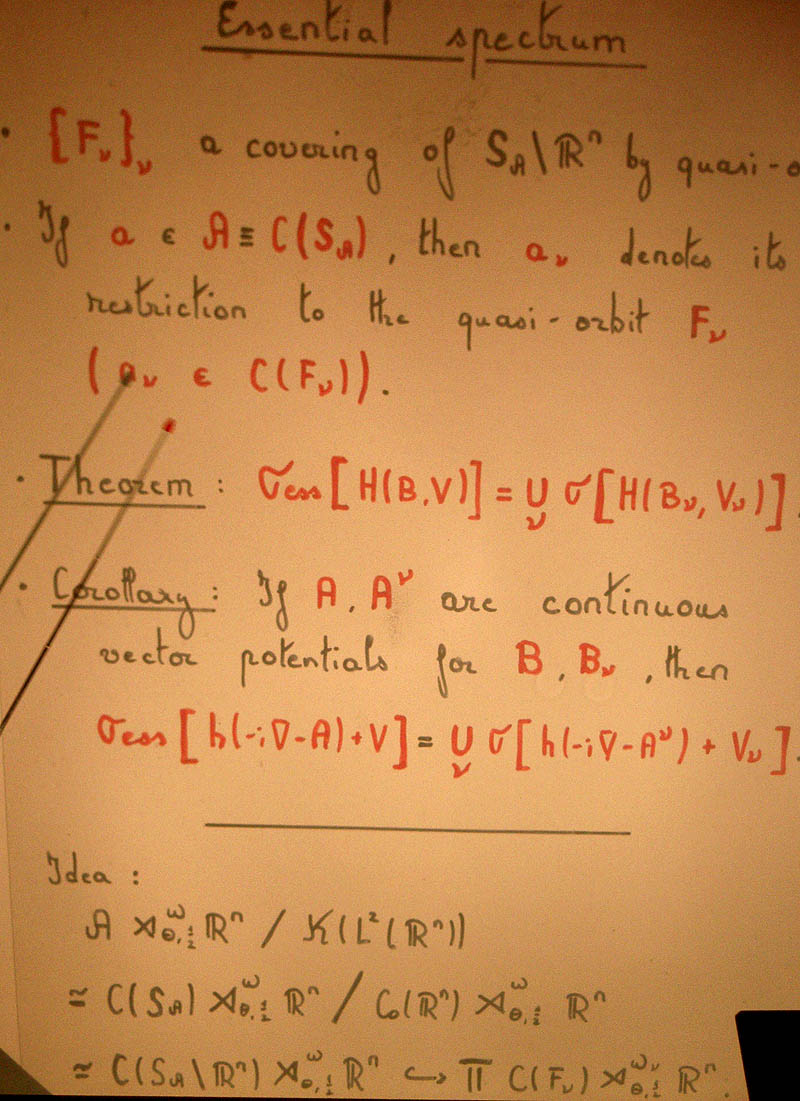 Essential spectrum
• {F_ν}_ν a covering of S_𝒜\ℝⁿ by quasi-o
• If a ∈ 𝒜 ≡ C(S_𝒜), then a_ν denotes its
restriction to the quasi-orbit F_ν
(a_ν ∈ C(F_ν)).
• Theorem : σess[H(B,V)] = ∪_ν σ[H(B_ν, V_ν)].
• Corollary : If A, A^ν are continuous
vector potentials for B, B_ν, then
σess[h(-i∇-A)+V] = ∪_ν σ[h(-i∇-A^ν) + V_ν].
Idea :
𝒜 ⋊^ω_{θ,½} ℝⁿ / K(L²(ℝⁿ))
≃ C(S_𝒜) ⋊^ω_{θ,½} ℝⁿ / C₀(ℝⁿ) ⋊^ω_{θ,½} ℝⁿ
≃ C(S_𝒜\ℝⁿ) ⋊^ω_{θ,½} ℝⁿ ↪ Π C(F_ν) ⋊^{ω_ν}_{θ,½} ℝⁿ.